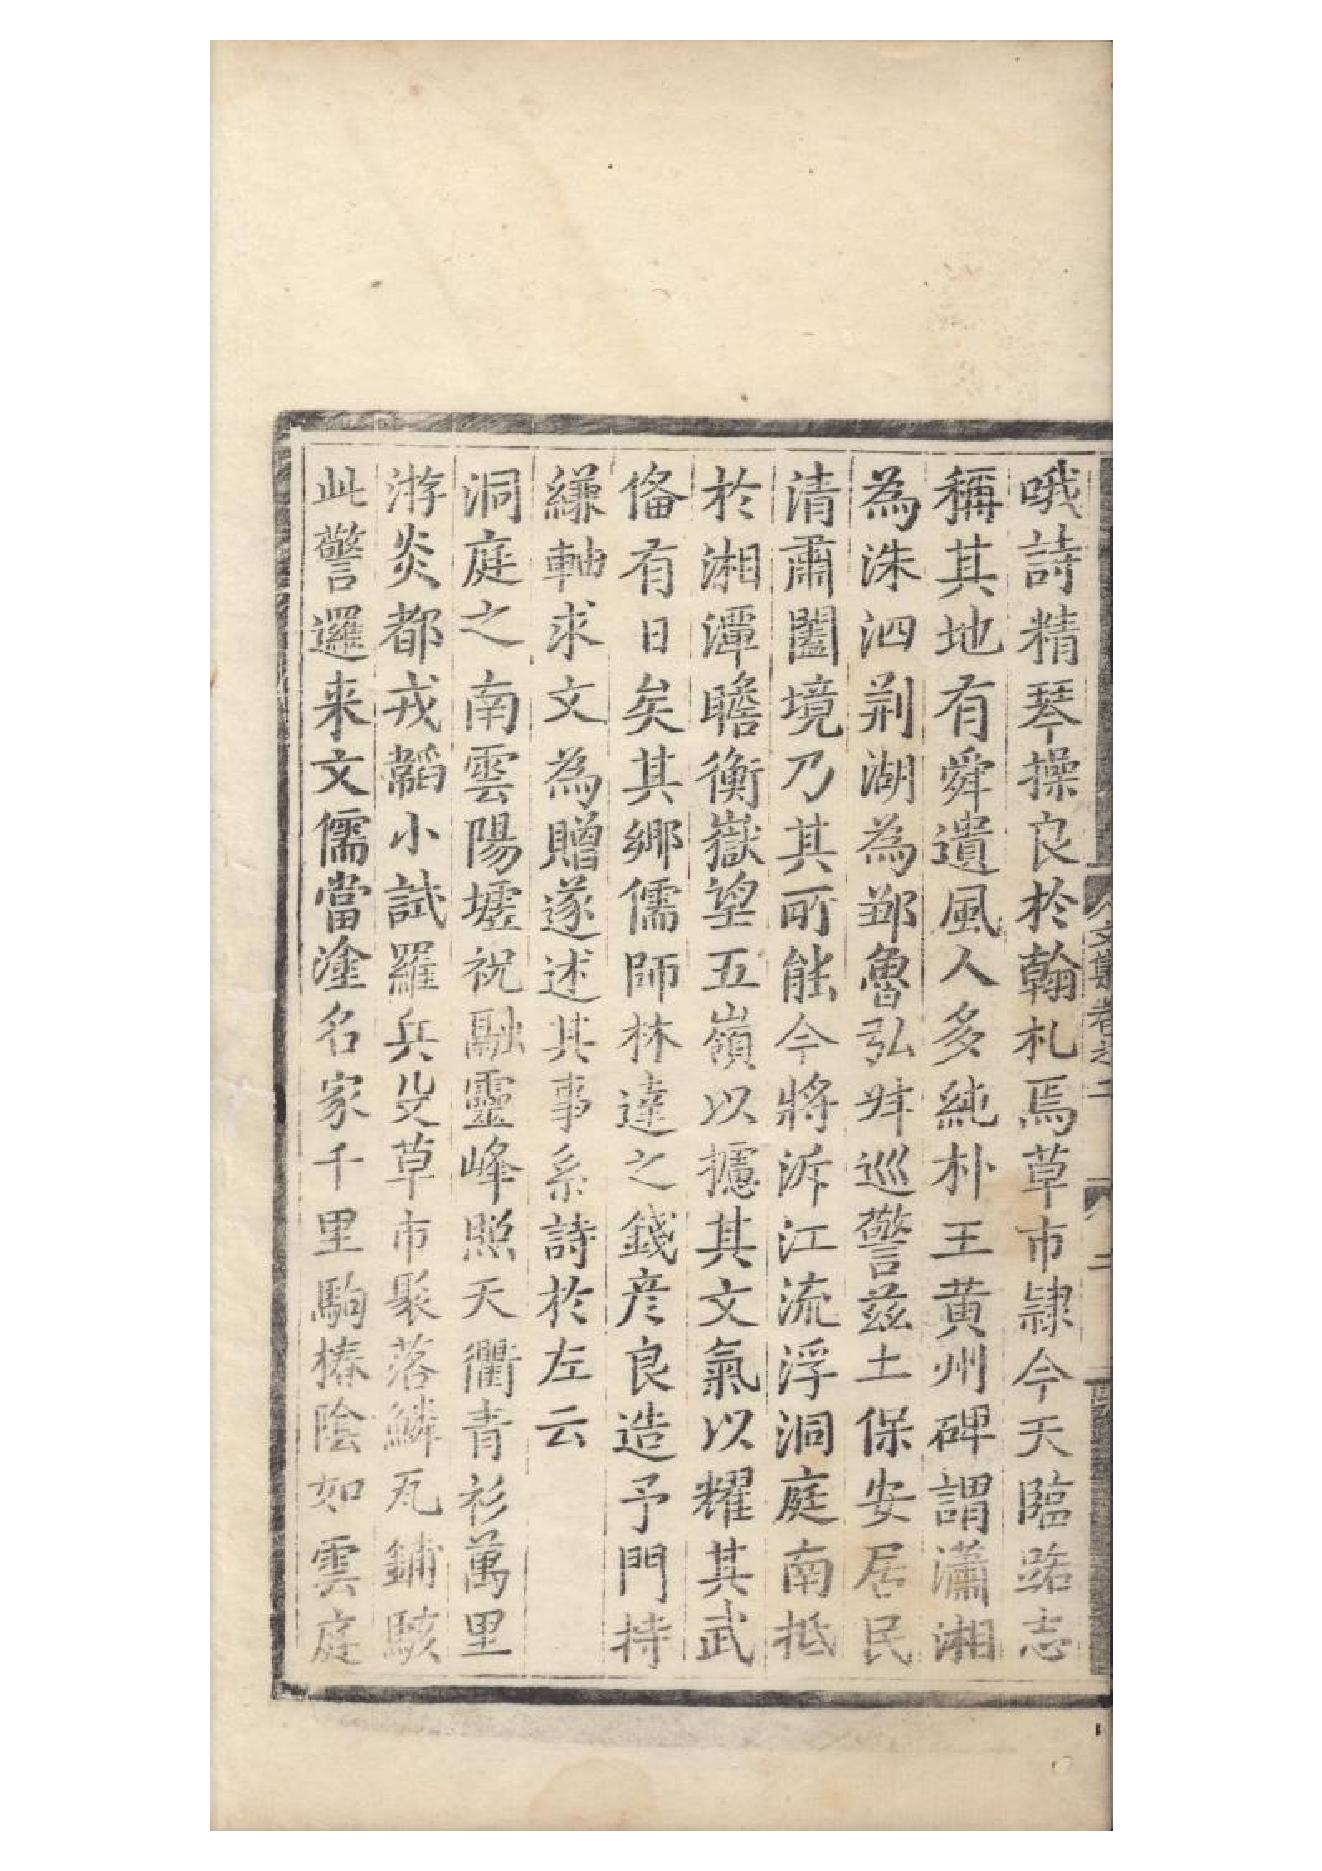 哦詩精琴操良於翰札焉草市隷今天臨踣志
稱其地有舜遺風人多純朴王黄州碑謂瀟湘
為洙泗荆湖為鄒魯弘牂巡警兹土保安居民
清肅闔境乃其所能今將泝江流浮洞庭南抵
於湘潭瞻衡嶽望五嶺以攄其文氣以耀其武
俻有日矣其鄉儒師林達之錢彦良造予門持
縑軸求文為贈遂述其事系詩於左云
洞庭之南雲陽墟祝融靈峰照天衢青衫萬里
游炎都戎韜小試羅兵殳草市聚落鱗瓦鋪駭
此警邏来文儒當塗名家千里駒椿陰如雲庭
文集卷之二
二